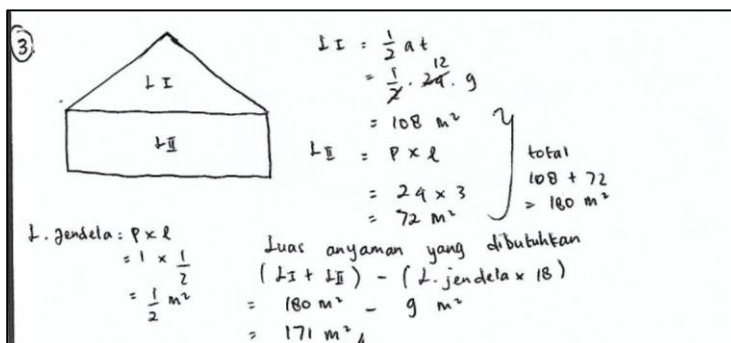 3
L I
L II
L I = 1/2 a t
= 1/2 . 24 12 . 9
= 108 m²
L II = P x l
= 24 x 3
= 72 m²
total
108 + 72
= 180 m²
L. Jendela = P x l
= 1 x 1/2
= 1/2 m²
Luas anyaman yang dibutuhkan
(L I + L II) - (L. jendela x 18)
= 180 m² - 9 m²
= 171 m²